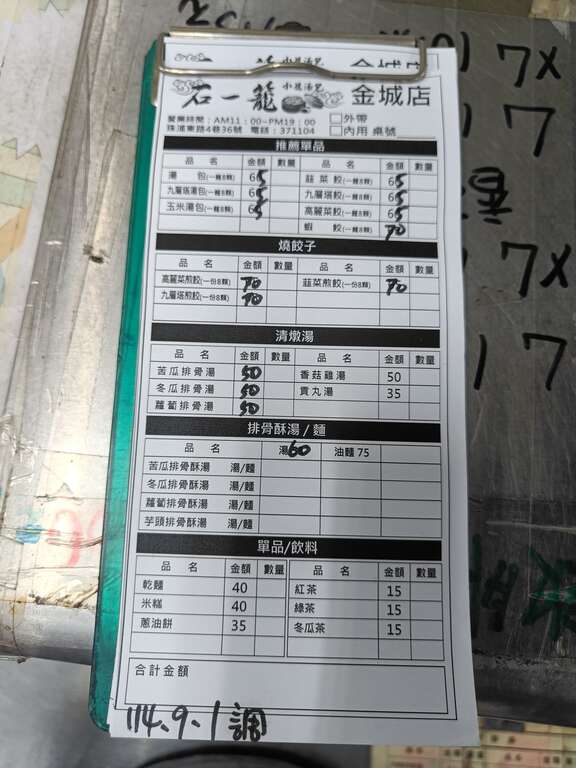 石一籠 小籠湯包 金城店
營業時間：AM11：00~PM19：00 □外帶
珠浦東路4巷36號 電話：371104 □內用 桌號
推薦單品
品名 金額 數量 品名 金額 數量
湯包(一籠8顆) 65 韮菜餃(一籠8顆) 65
九層塔湯包(一籠8顆) 65 九層塔餃(一籠8顆) 65
玉米湯包(一籠8顆) 65 高麗菜餃(一籠8顆) 65
蝦餃(一籠8顆) 70
燒餃子
品名 金額 數量 品名 金額 數量
高麗菜煎餃(一份8顆) 70 韮菜煎餃(一份8顆) 70
九層塔煎餃(一份8顆) 70
清燉湯
品名 金額 數量 品名 金額 數量
苦瓜排骨湯 50 香菇雞湯 50
冬瓜排骨湯 50 貢丸湯 35
蘿蔔排骨湯 50
排骨酥湯/麵
品名 湯60 油麵75
苦瓜排骨酥湯 湯/麵
冬瓜排骨酥湯 湯/麵
蘿蔔排骨酥湯 湯/麵
芋頭排骨酥湯 湯/麵
單品/飲料
品名 金額 數量 品名 金額 數量
乾麵 40 紅茶 15
米糕 40 綠茶 15
蔥油餅 35 冬瓜茶 15
合計金額
114.9.1調